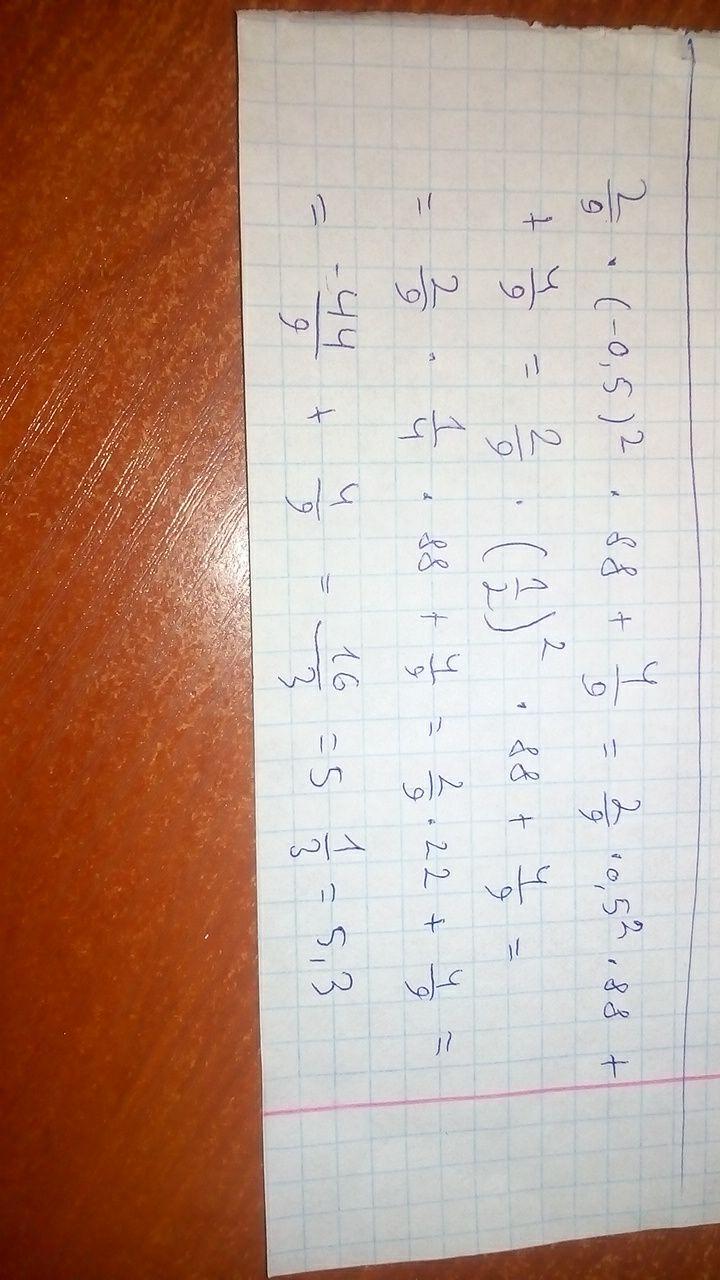 2/9 · (-0,5)² · 88 + 4/9 = 2/9 · 0,5² · 88 +
+ 4/9 = 2/9 · (1/2)² · 88 + 4/9 =
= 2/9 · 1/4 · 88 + 4/9 = 2/9 · 22 + 4/9 =
= -44/9 + 4/9 = 16/3 = 5 1/3 = 5,3